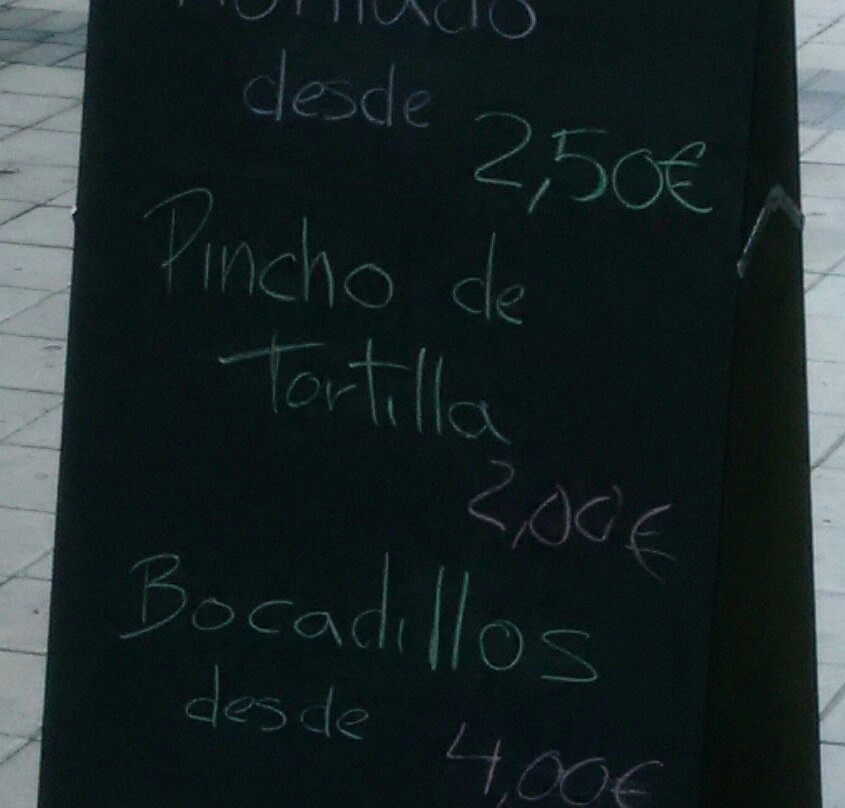 desde
2,50€
Pincho de
Tortilla
2,00€
Bocadillos
desde
4,00€